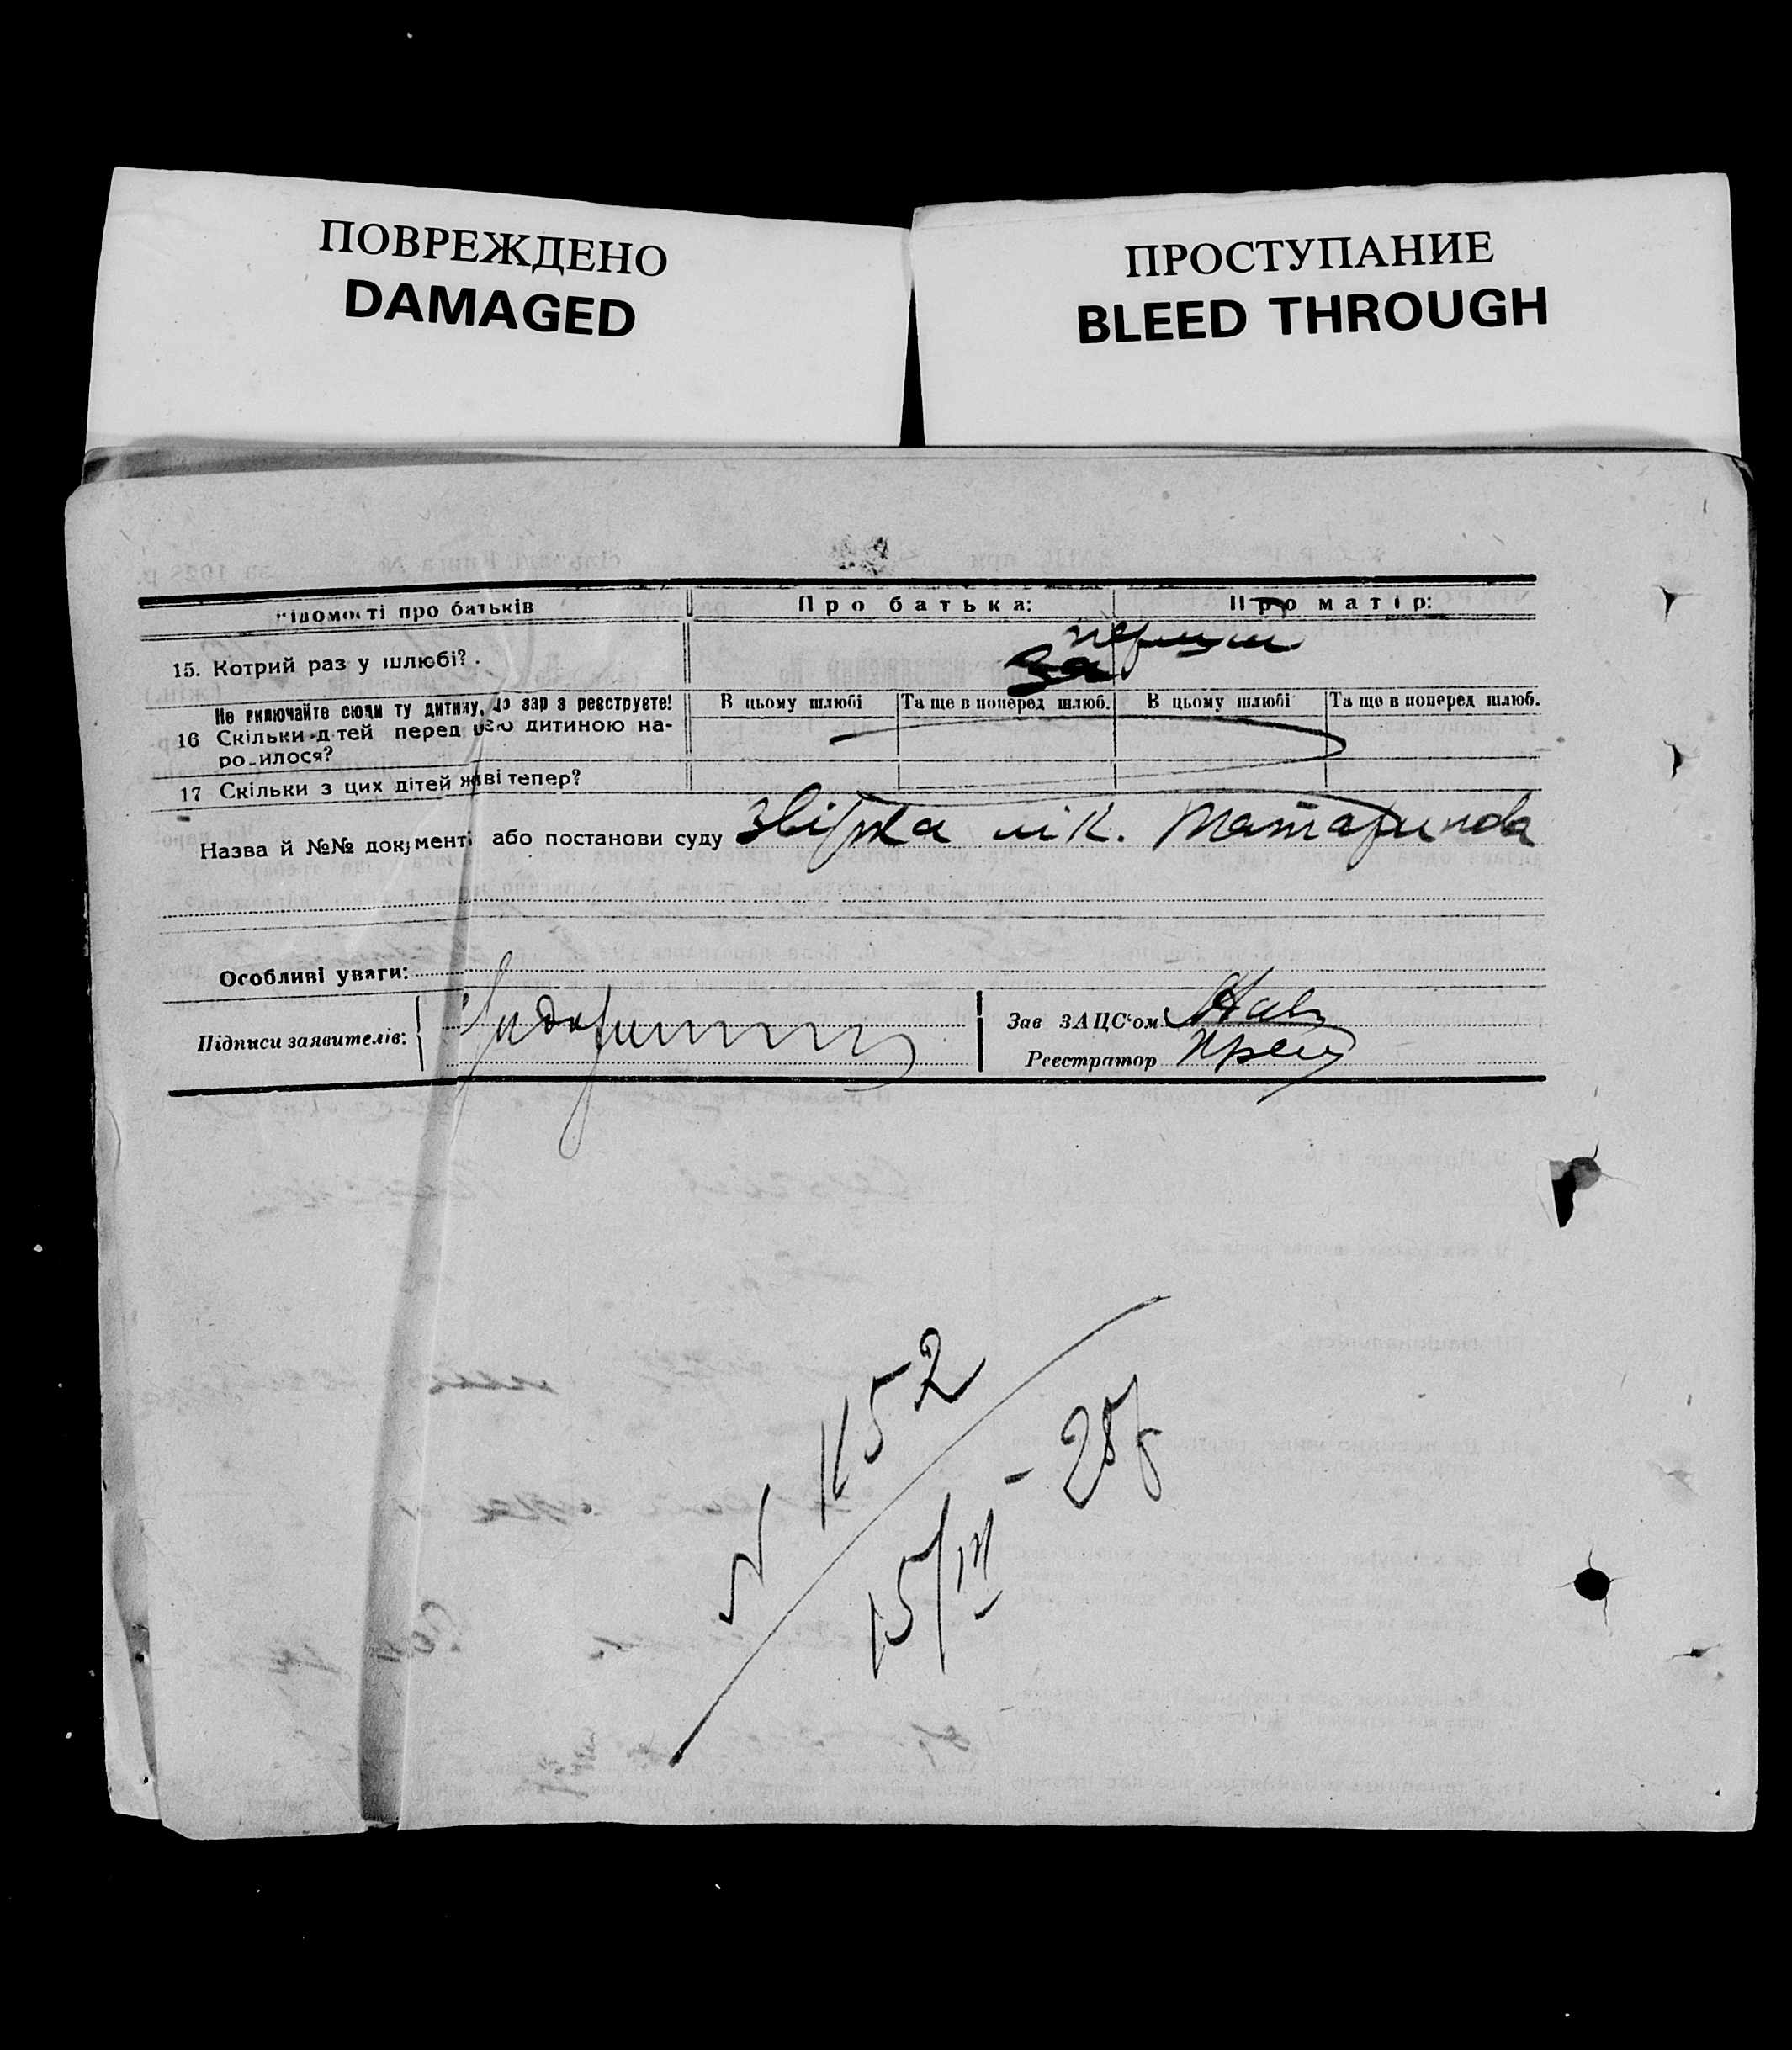 ПОВРЕЖДЕНО
DAMAGED
ПРОСТУПАНИЕ
BLEED THROUGH
ідомості про батьків
Про батька:
Про матір:
15. Котрий раз у шлюбі?.
За перший
Не включайте сюди ту дитину, що зар з реєструєте!
16 Скільки д тей перед цею дитиною на-
ро илося?
В цьому шлюбі
Та ще в поперед шлюб.
В цьому шлюбі
Та ще в поперед шлюб.
17 Скільки з цих дітей живі тепер?
Назва й №№ документі або постанови суду звірка лік. Татаринова
Особливі уваги:
Підписи заявителів:
Зав ЗАЦС'ом
Реєстратор
N 1152
15/III - 28 р